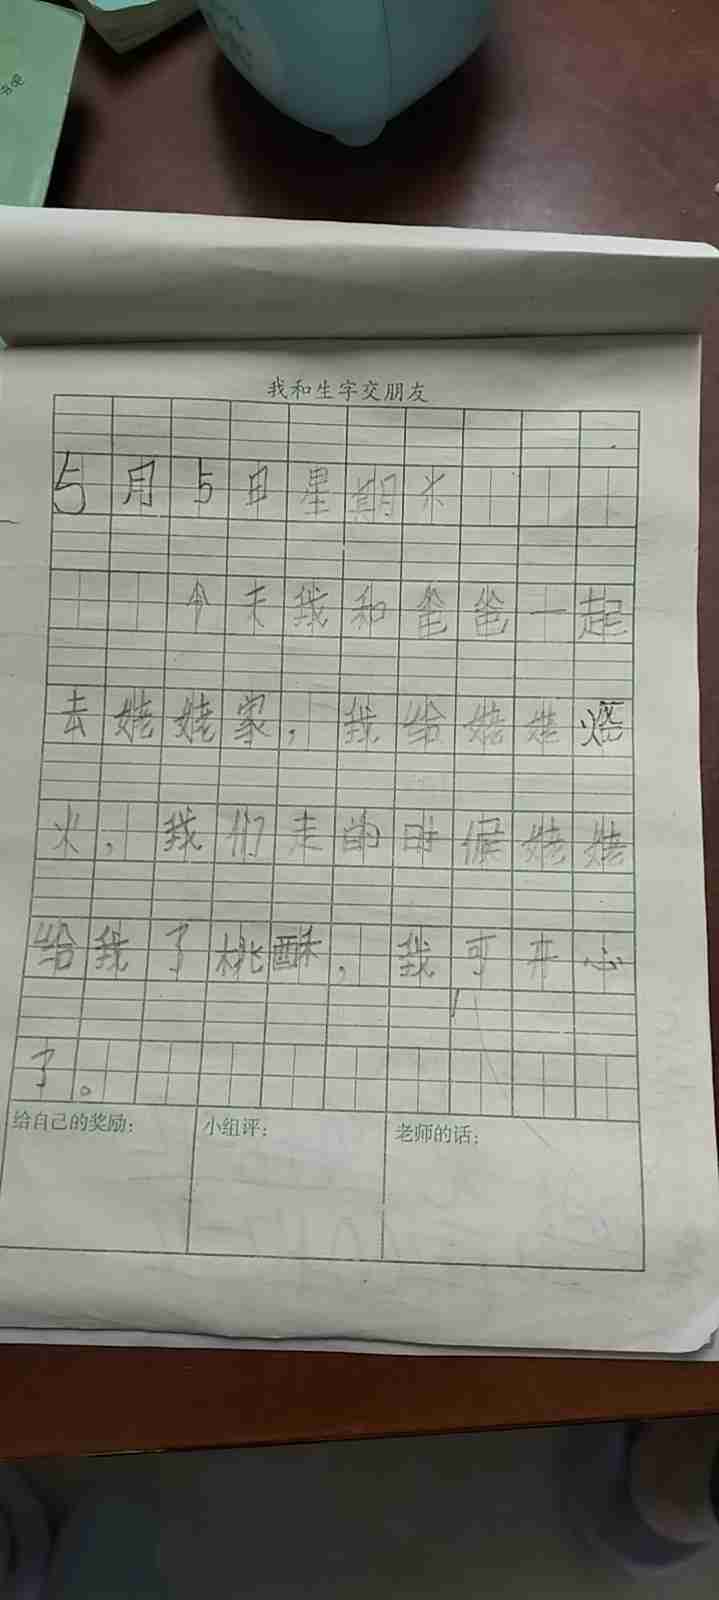 我和生字交朋友
5月5日星期火
今天我和爸爸一起
去姥姥家，我给姥姥烧
火，我们走的时候姥姥
给我了桃酥，我可开心
了。
给自己的奖励： 小组评： 老师的话：